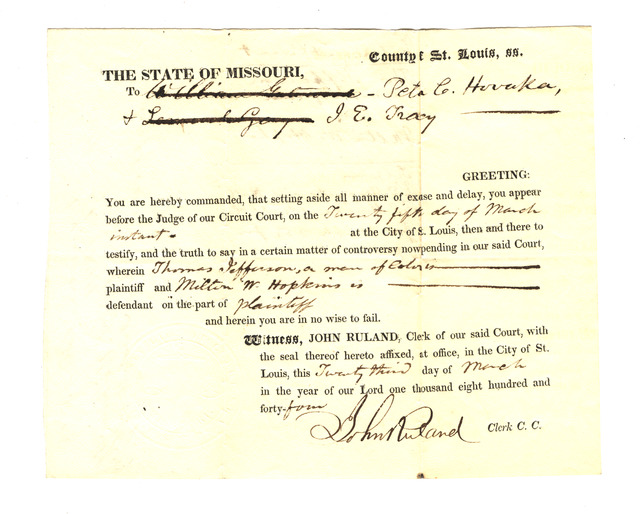 County of St. Louis, ss.
THE STATE OF MISSOURI,
To William - Peter C. Hovuka,
& I. E. Tracy
GREETING:
You are hereby commanded, that setting aside all manner of excse and delay, you appear
before the Judge of our Circuit Court, on the Twenty fifth day of March
instant - at the City of S. Louis, then and there to
testify, and the truth to say in a certain matter of controversy nowpending in our said Court,
wherein Thomas Jefferson, a man of Color is
plaintiff and Milton W Hopkins is
defendant on the part of plaintiff
and herein you are in no wise to fail.
Witness, JOHN RULAND, Clerk of our said Court, with
the seal thereof hereto affixed, at office, in the City of St.
Louis, this Twenty third day of March
in the year of our Lord one thousand eight hundred and
forty-four
John Ruland Clerk C. C.